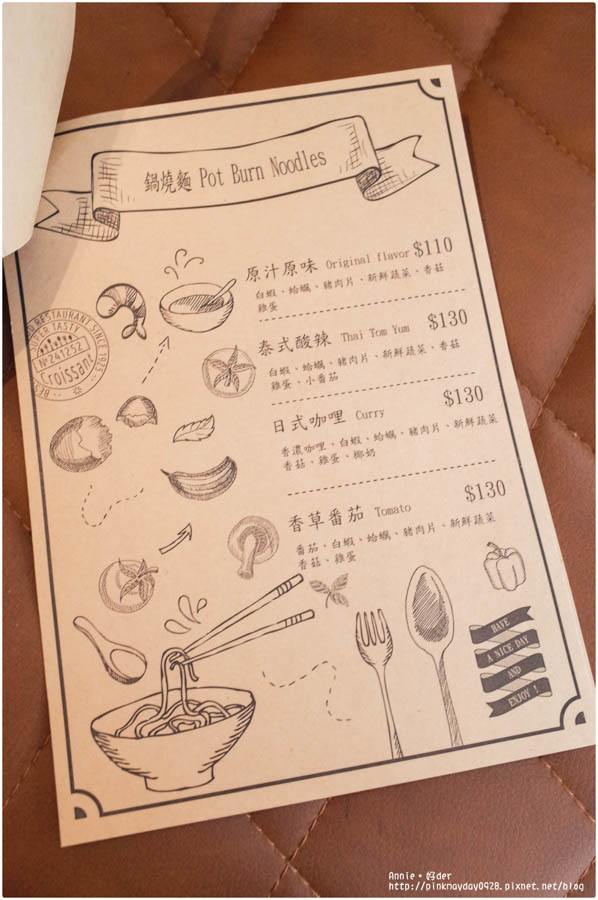 鍋燒麵 Pot Burn Noodles
原汁原味 Original flavor $110
白蝦、蛤蠣、豬肉片、新鮮蔬菜、香菇
雞蛋
泰式酸辣 Thai Tom Yum $130
白蝦、蛤蠣、豬肉片、新鮮蔬菜、香菇
雞蛋、小番茄
日式咖哩 Curry $130
香濃咖哩、白蝦、蛤蠣、豬肉片、新鮮蔬菜
香菇、雞蛋、椰奶
香草番茄 Tomato $130
番茄、白蝦、蛤蠣、豬肉片、新鮮蔬菜
香菇、雞蛋
RESTAURANT SINCE 1925
SUPER TASTY
No 241252
Croissant
HAVE
A NICE DAY
AND
ENJOY !
Annie。好der
http://pinknayday0928.pixnet.net/blog